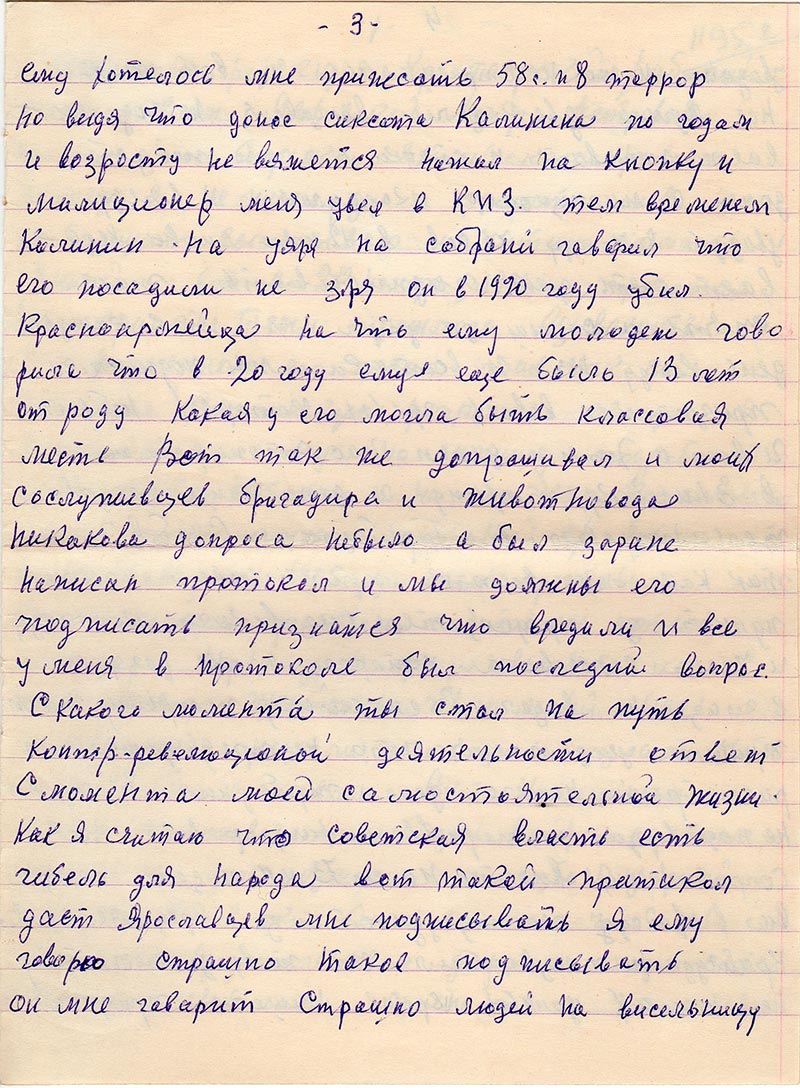 - 3 -
ему хотелось мне приписать 58 с. п 8 террор
но видя что донос сиксота Калинина по годам
и возросту не вяжется нажал на кнопку и
милиционер меня увел в КПЗ. тем временем
Калинин на собрани гаварил что
его посадили не зря он в 1920 году убил
Красноармейца на что ему молодеж гово
рила что в 20 году ему еще было 13 лет
от роду Какая у его могла быть классовая
месть Вот так же допрашивал и моих
сослуживцев бригадира и животновода
никакова допроса небыло а был заране
написан протокол и мы должны его
подписать признатся что вредили и все
у меня в протоколе был последний вопрос.
С какого момента ты стал на путь
контр-революционой деятельности ответ
С момента моей самостоятельной жизни.
Как я считаю что советская власть есть
гибель для народа вот такой пратикол
даст Ярославцев мне подписывать я ему
говорю страшно такое подписывать
он мне гаварит Страшно людей на висельницу